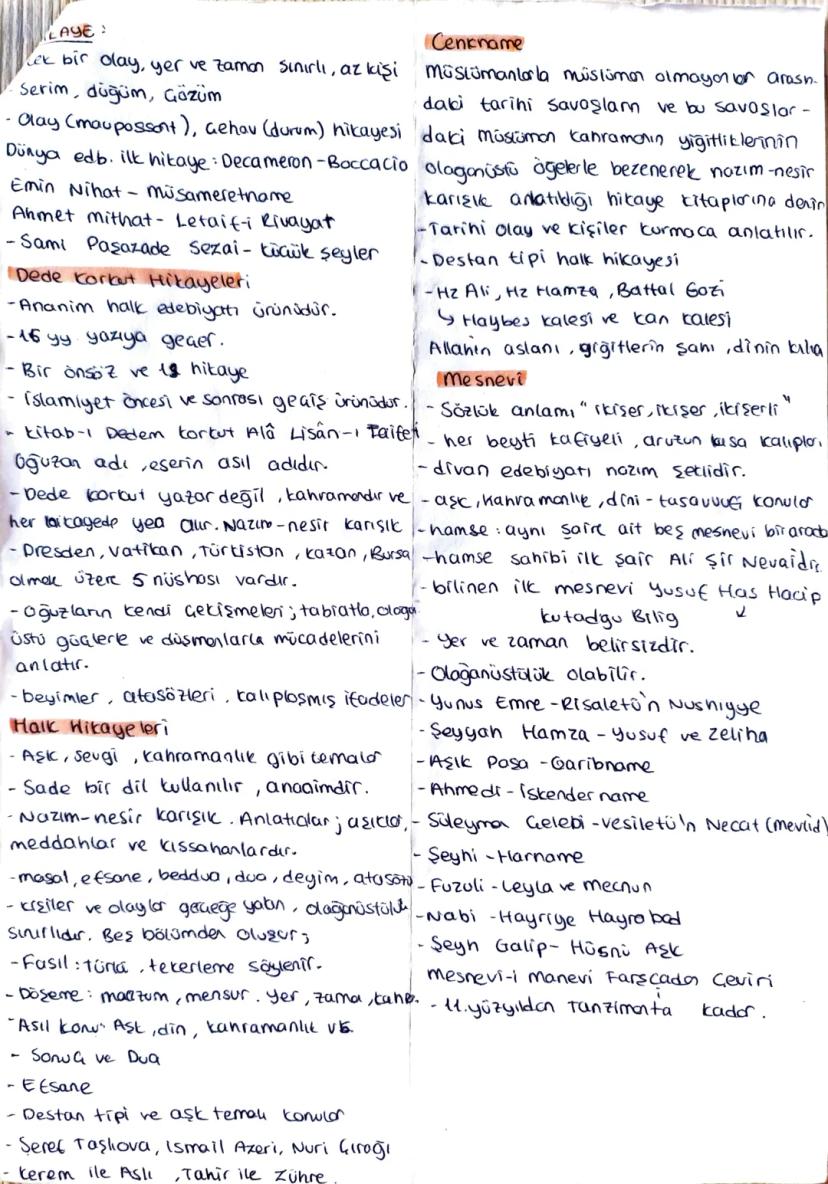 LAYE:
tek bir olay, yer ve zaman sınırlı, az kişi
- Serim, düğüm, Çözüm
- Olay (maupossant), Gehov (durum) hikayesi
Dünya edb. ilk hikaye: Decameron - Boccacio
Emin Nihat - Müsameretname
Ahmet mithat - Letaif-i Rivayat
- Sami Paşazade Sezai - küçük şeyler
Dede Korkut Hikayeleri
- Ananim halk edebiyatı ürünüdür.
- 16 yy yazıya geçer.
- Bir önsöz ve 12 hikaye
- islamiyet öncesi ve sonrası geçiş ürünüdür.
- Kitab-ı Dedem Korkut Alâ Lisân-ı Taifeti
Oğuzan adı, eserin asıl adıdır.
- Dede Korkut yazar değil, kahramandır ve
her hikayede yer alır. Nazım-nesir karışık
- Dresden, Vatikan, Türkistan, kazan, Bursa
olmak üzere 5 nüshası vardır.
- Oğuzların kendi çekişmeleri; tabiatla, olağa
üstü güçlerle ve düşmanlarla mücadelerini
anlatır.
- beyimler, atasözleri, kalıplaşmış ifadeler
Halk Hikayeleri
- Aşk, sevgi, kahramanlık gibi temalar
- Sade bir dil kullanılır, anonimdir.
- Nazım-nesir karışık. Anlatıcılar; aşıklar,
meddahlar ve kıssahanlardır.
- masal, efsane, beddua, dua, deyim, atasözü
- kişiler ve olaylar gerçeğe yakın, olağanüstülük
sınırlıdır. Beş bölümden oluşur;
- Fasıl: türkü, tekerleme söylenir.
- Döşeme: manzum, mensur. Yer, zama, kahr.
- Asıl konu: Aşk, din, kahramanlık vb.
- Sonuç ve Dua
- Efsane
- Destan tipi ve aşk temalı konular
- Şeref Taşlıova, İsmail Azeri, Nuri Çırağı
- Kerem ile Aslı, Tahir ile Zühre.
Cenkname
Müslümanlarla müslüman olmayanlar arasın-
daki tarihi savaşların ve bu savaşlar-
daki müslüman kahramanın yiğitliklerinin
olağanüstü öğelerle bezenerek nazım-nesir
karışık anlatıldığı hikaye kitaplarına denir
- Tarihi olay ve kişiler kurmaca anlatılır.
- Destan tipi halk hikayesi
- Hz Ali, Hz Hamza, Battal Gazi
↳ Haybes kalesi ve kan kalesi
Allahın aslanı, yiğitlerin şahı, dinin kılıcı
Mesnevi
- Sözlük anlamı "ikişer, ikişer, ikişerli"
- her beyti kafiyeli, aruzun kısa kalıpları
- divan edebiyatı nazım şeklidir.
- aşk, kahramanlık, dini-tasavvuf konular
- hamse: aynı şaire ait beş mesnevi bir arada
- hamse sahibi ilk şair Ali Şir Nevaidir
- bilinen ilk mesnevi Yusuf Has Hacip
↙
Kutadgu Bilig
- Yer ve zaman belirsizdir.
- Olağanüstülük olabilir.
- Yunus Emre - Risaletü'n Nushiyye
- Şeyyah Hamza - Yusuf ve Zeliha
- Aşık Paşa - Garibname
- Ahmedi - İskendername
- Süleyman Çelebi - Vesiletü'n Necat (mevlid)
- Şeyhi - Harname
- Fuzuli - Leyla ve Mecnun
- Nabi - Hayriye Hayrabad
- Şeyh Galip - Hüsnü Aşk
Mesnevi-i Manevi Farsçadan Çeviri
- 11. yüzyıldan Tanzimanta kadar.